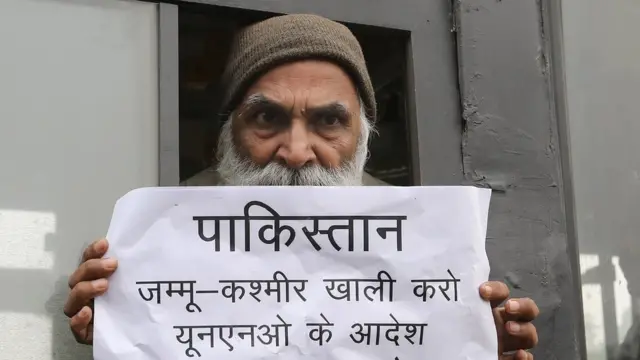 पाकिस्तान
जम्मू–कश्मीर खाली करो
यूनएनओ के आदेश